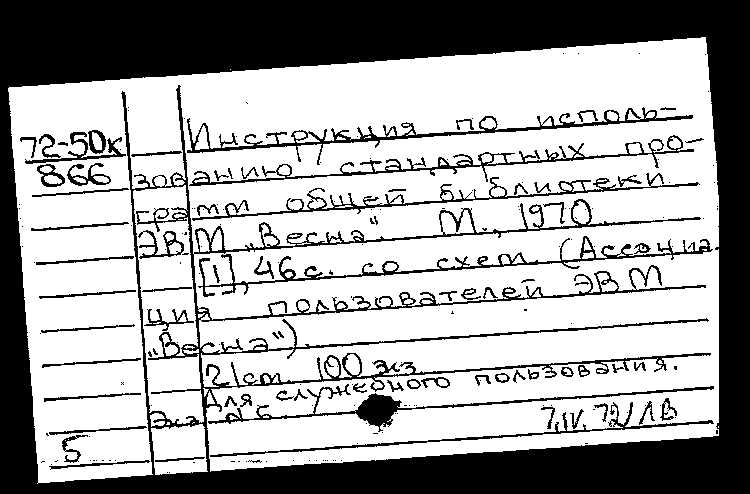 72-50к
866
Инструкция по исполь-
зованию стандартных про-
грамм общей библиотеки
ЭВМ „Весна". М., 1970.
[1], 46 с. со схем. (Ассоциа-
ция пользователей ЭВМ
„Весна").
21 см. 100 экз.
Для служебного пользования.
Экз. №6
5
7.IV.72/ЛВ